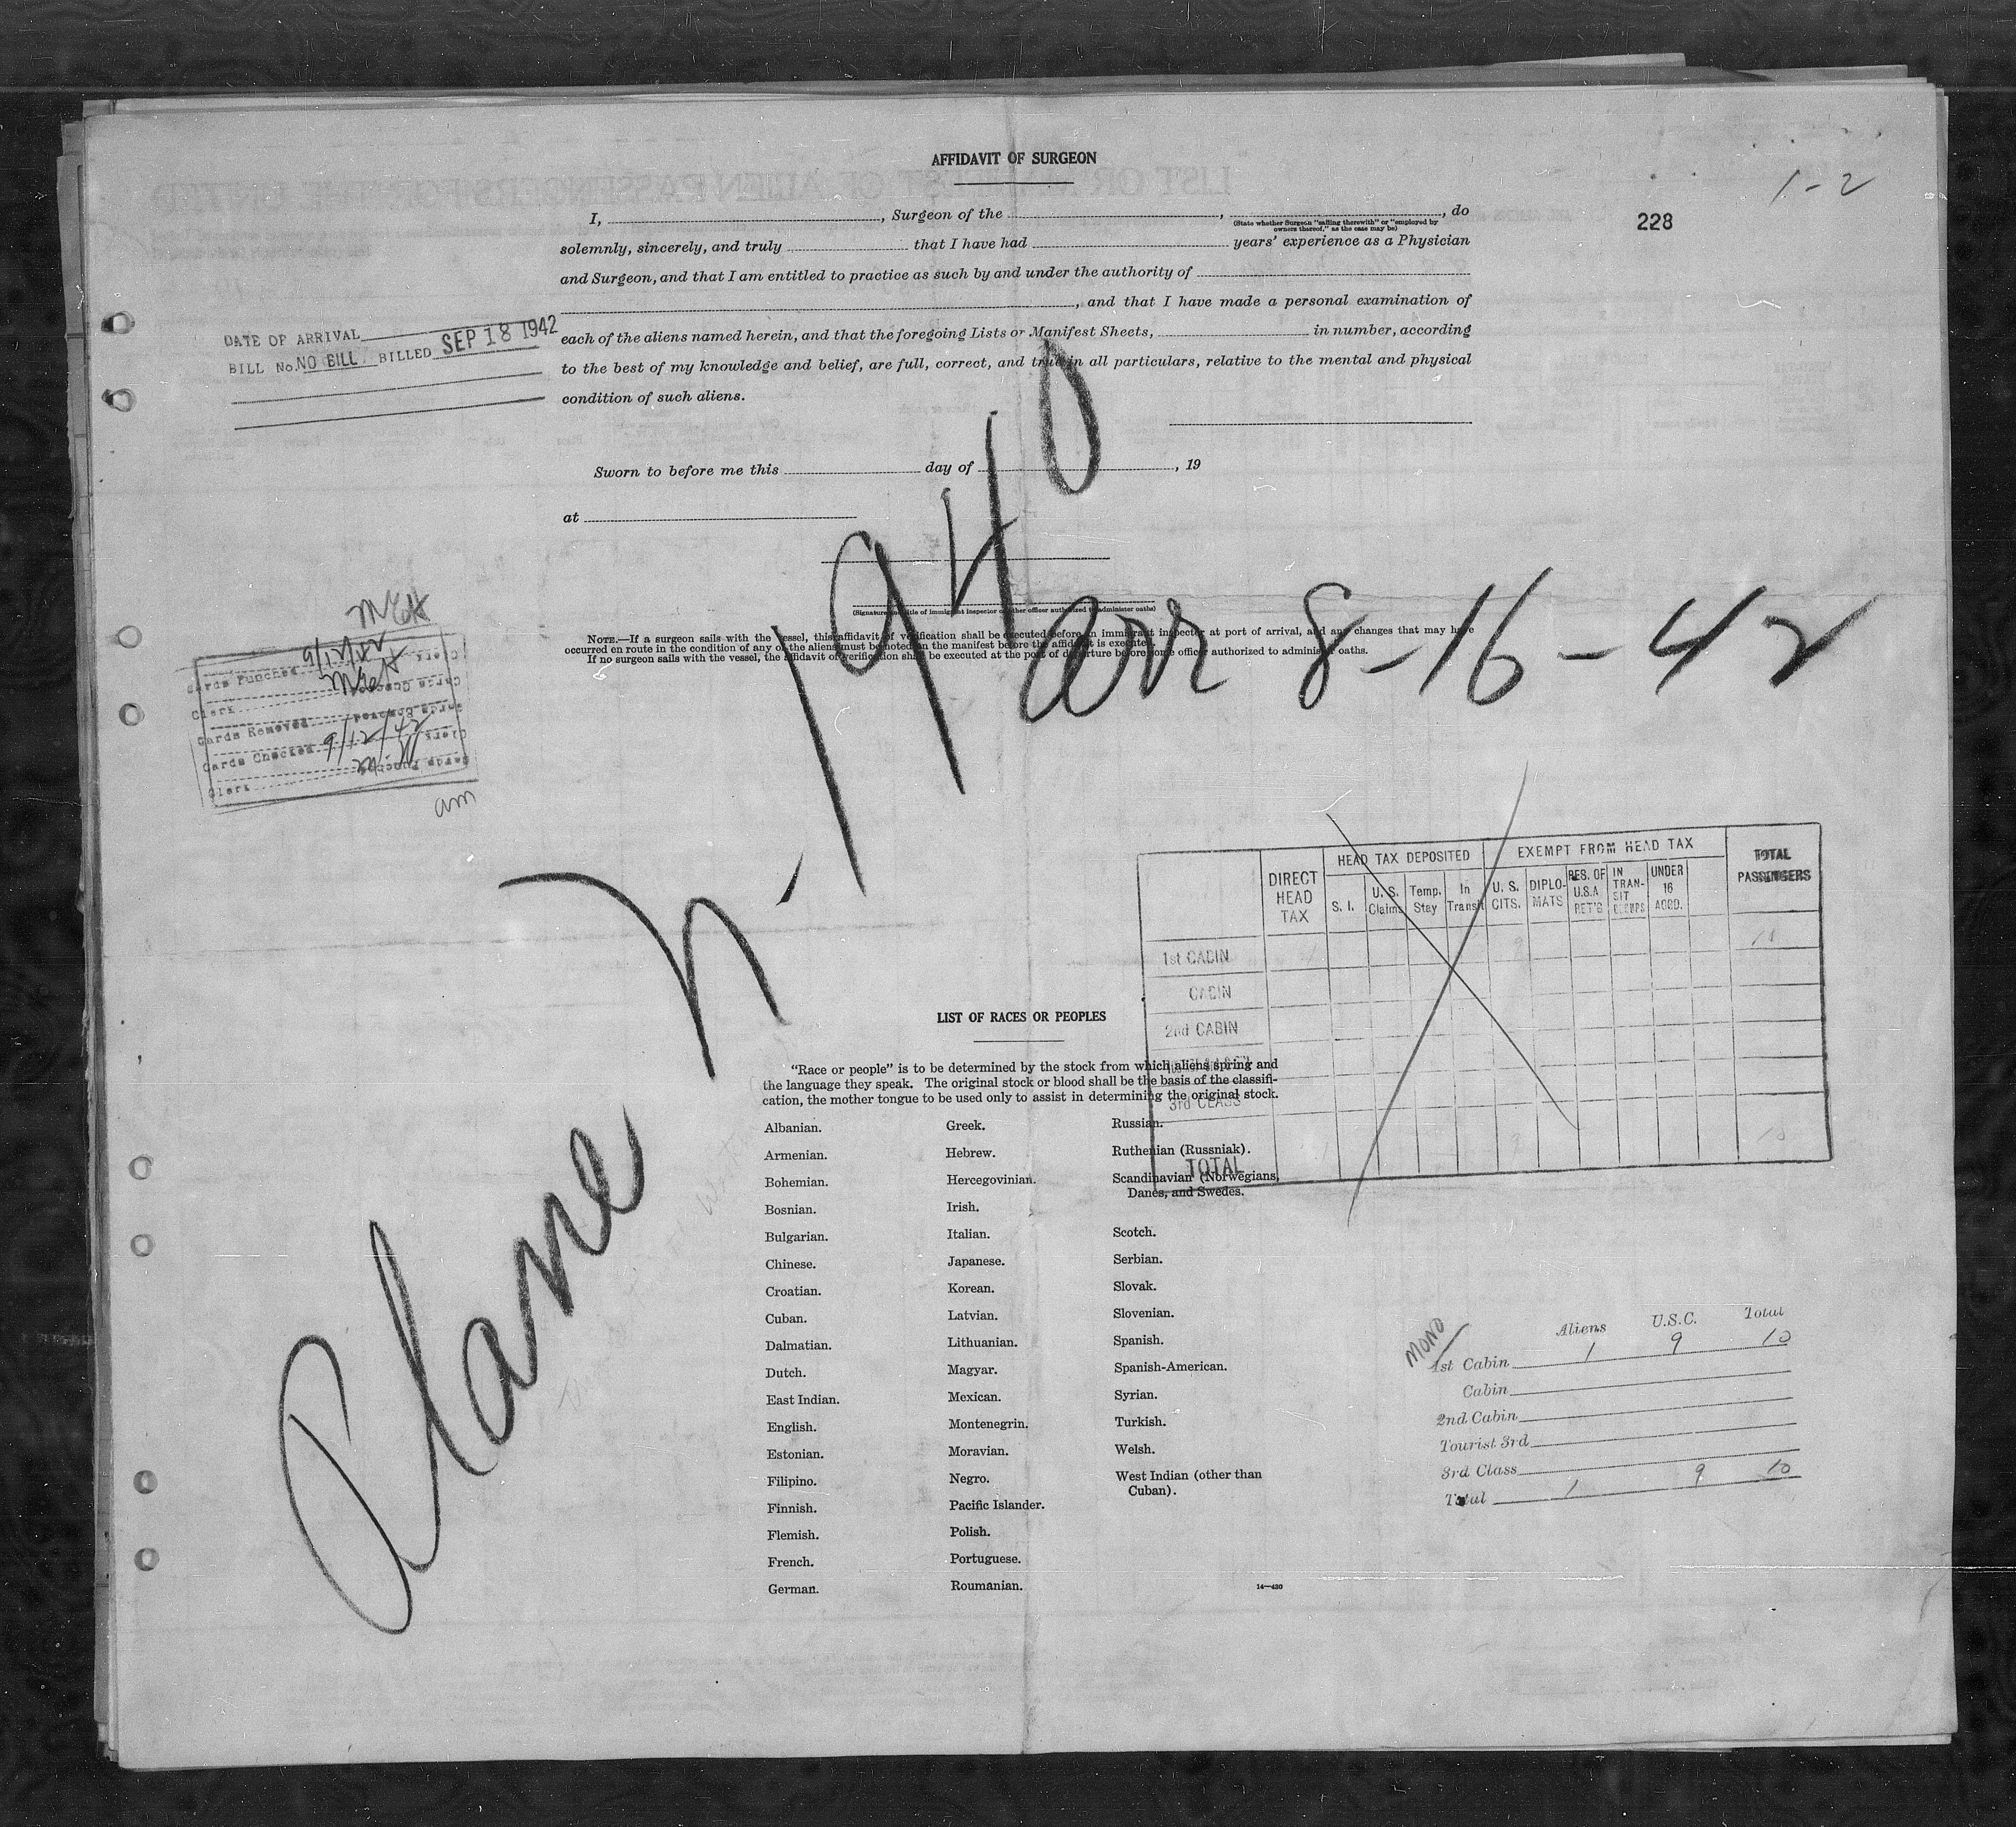 AFFIDAVIT OF SURGEON
1-2
228
I, , Surgeon of the , , do
(State whether Surgeon "sailing therewith" or "employed by
owners thereof," as the case may be)
solemnly, sincerely, and truly that I have had years' experience as a Physician
and Surgeon, and that I am entitled to practice as such by and under the authority of
, and that I have made a personal examination of
each of the aliens named herein, and that the foregoing Lists or Manifest Sheets, in number, according
to the best of my knowledge and belief, are full, correct, and true in all particulars, relative to the mental and physical
condition of such aliens.
DATE OF ARRIVAL
BILL No. NO BILL BILLED SEP 18 1942
Sworn to before me this day of , 19
at
(Signature and title of immigrant inspector or other officer authorized to administer oaths)
NOTE.—If a surgeon sails with the vessel, this affidavit of verification shall be executed before an immigrant inspector at port of arrival, and any changes that may have
occurred en route in the condition of any of the aliens must be noted in the manifest before the affidavit is executed.
If no surgeon sails with the vessel, the affidavit of verification shall be executed at the port of departure before some officer authorized to administer oaths.
Plane n-1940 arr 8-16-42
Cards Punched 9/12/42
Clerk
Cards Removed
Cards Checked 9/12/42
Clerk
am
DIRECT HEAD TAX
HEAD TAX DEPOSITED
S. I.
U. S. Claims
Temp. Stay
In Transit
EXEMPT FROM HEAD TAX
U. S. CITS.
DIPLOMATS
RES. OF U.S.A RET'G
IN TRANSIT
UNDER 16 ACCD.
TOTAL PASSENGERS
1st CABIN
CABIN
2nd CABIN
3rd CLASS
TOTAL
LIST OF RACES OR PEOPLES
"Race or people" is to be determined by the stock from which aliens spring and
the language they speak. The original stock or blood shall be the basis of the classifi-
cation, the mother tongue to be used only to assist in determining the original stock.
Albanian.
Armenian.
Bohemian.
Bosnian.
Bulgarian.
Chinese.
Croatian.
Cuban.
Dalmatian.
Dutch.
East Indian.
English.
Estonian.
Filipino.
Finnish.
Flemish.
French.
German.
Greek.
Hebrew.
Hercegovinian.
Irish.
Italian.
Japanese.
Korean.
Latvian.
Lithuanian.
Magyar.
Mexican.
Montenegrin.
Moravian.
Negro.
Pacific Islander.
Polish.
Portuguese.
Roumanian.
Russian.
Ruthenian (Russniak).
Scandinavian (Norwegians,
Danes, and Swedes.
Scotch.
Serbian.
Slovak.
Slovenian.
Spanish.
Spanish-American.
Syrian.
Turkish.
Welsh.
West Indian (other than
Cuban).
14—430
MONO
Aliens U.S.C. Total
1st Cabin 1 9 10
Cabin
2nd Cabin
Tourist 3rd
3rd Class
Total 1 9 10